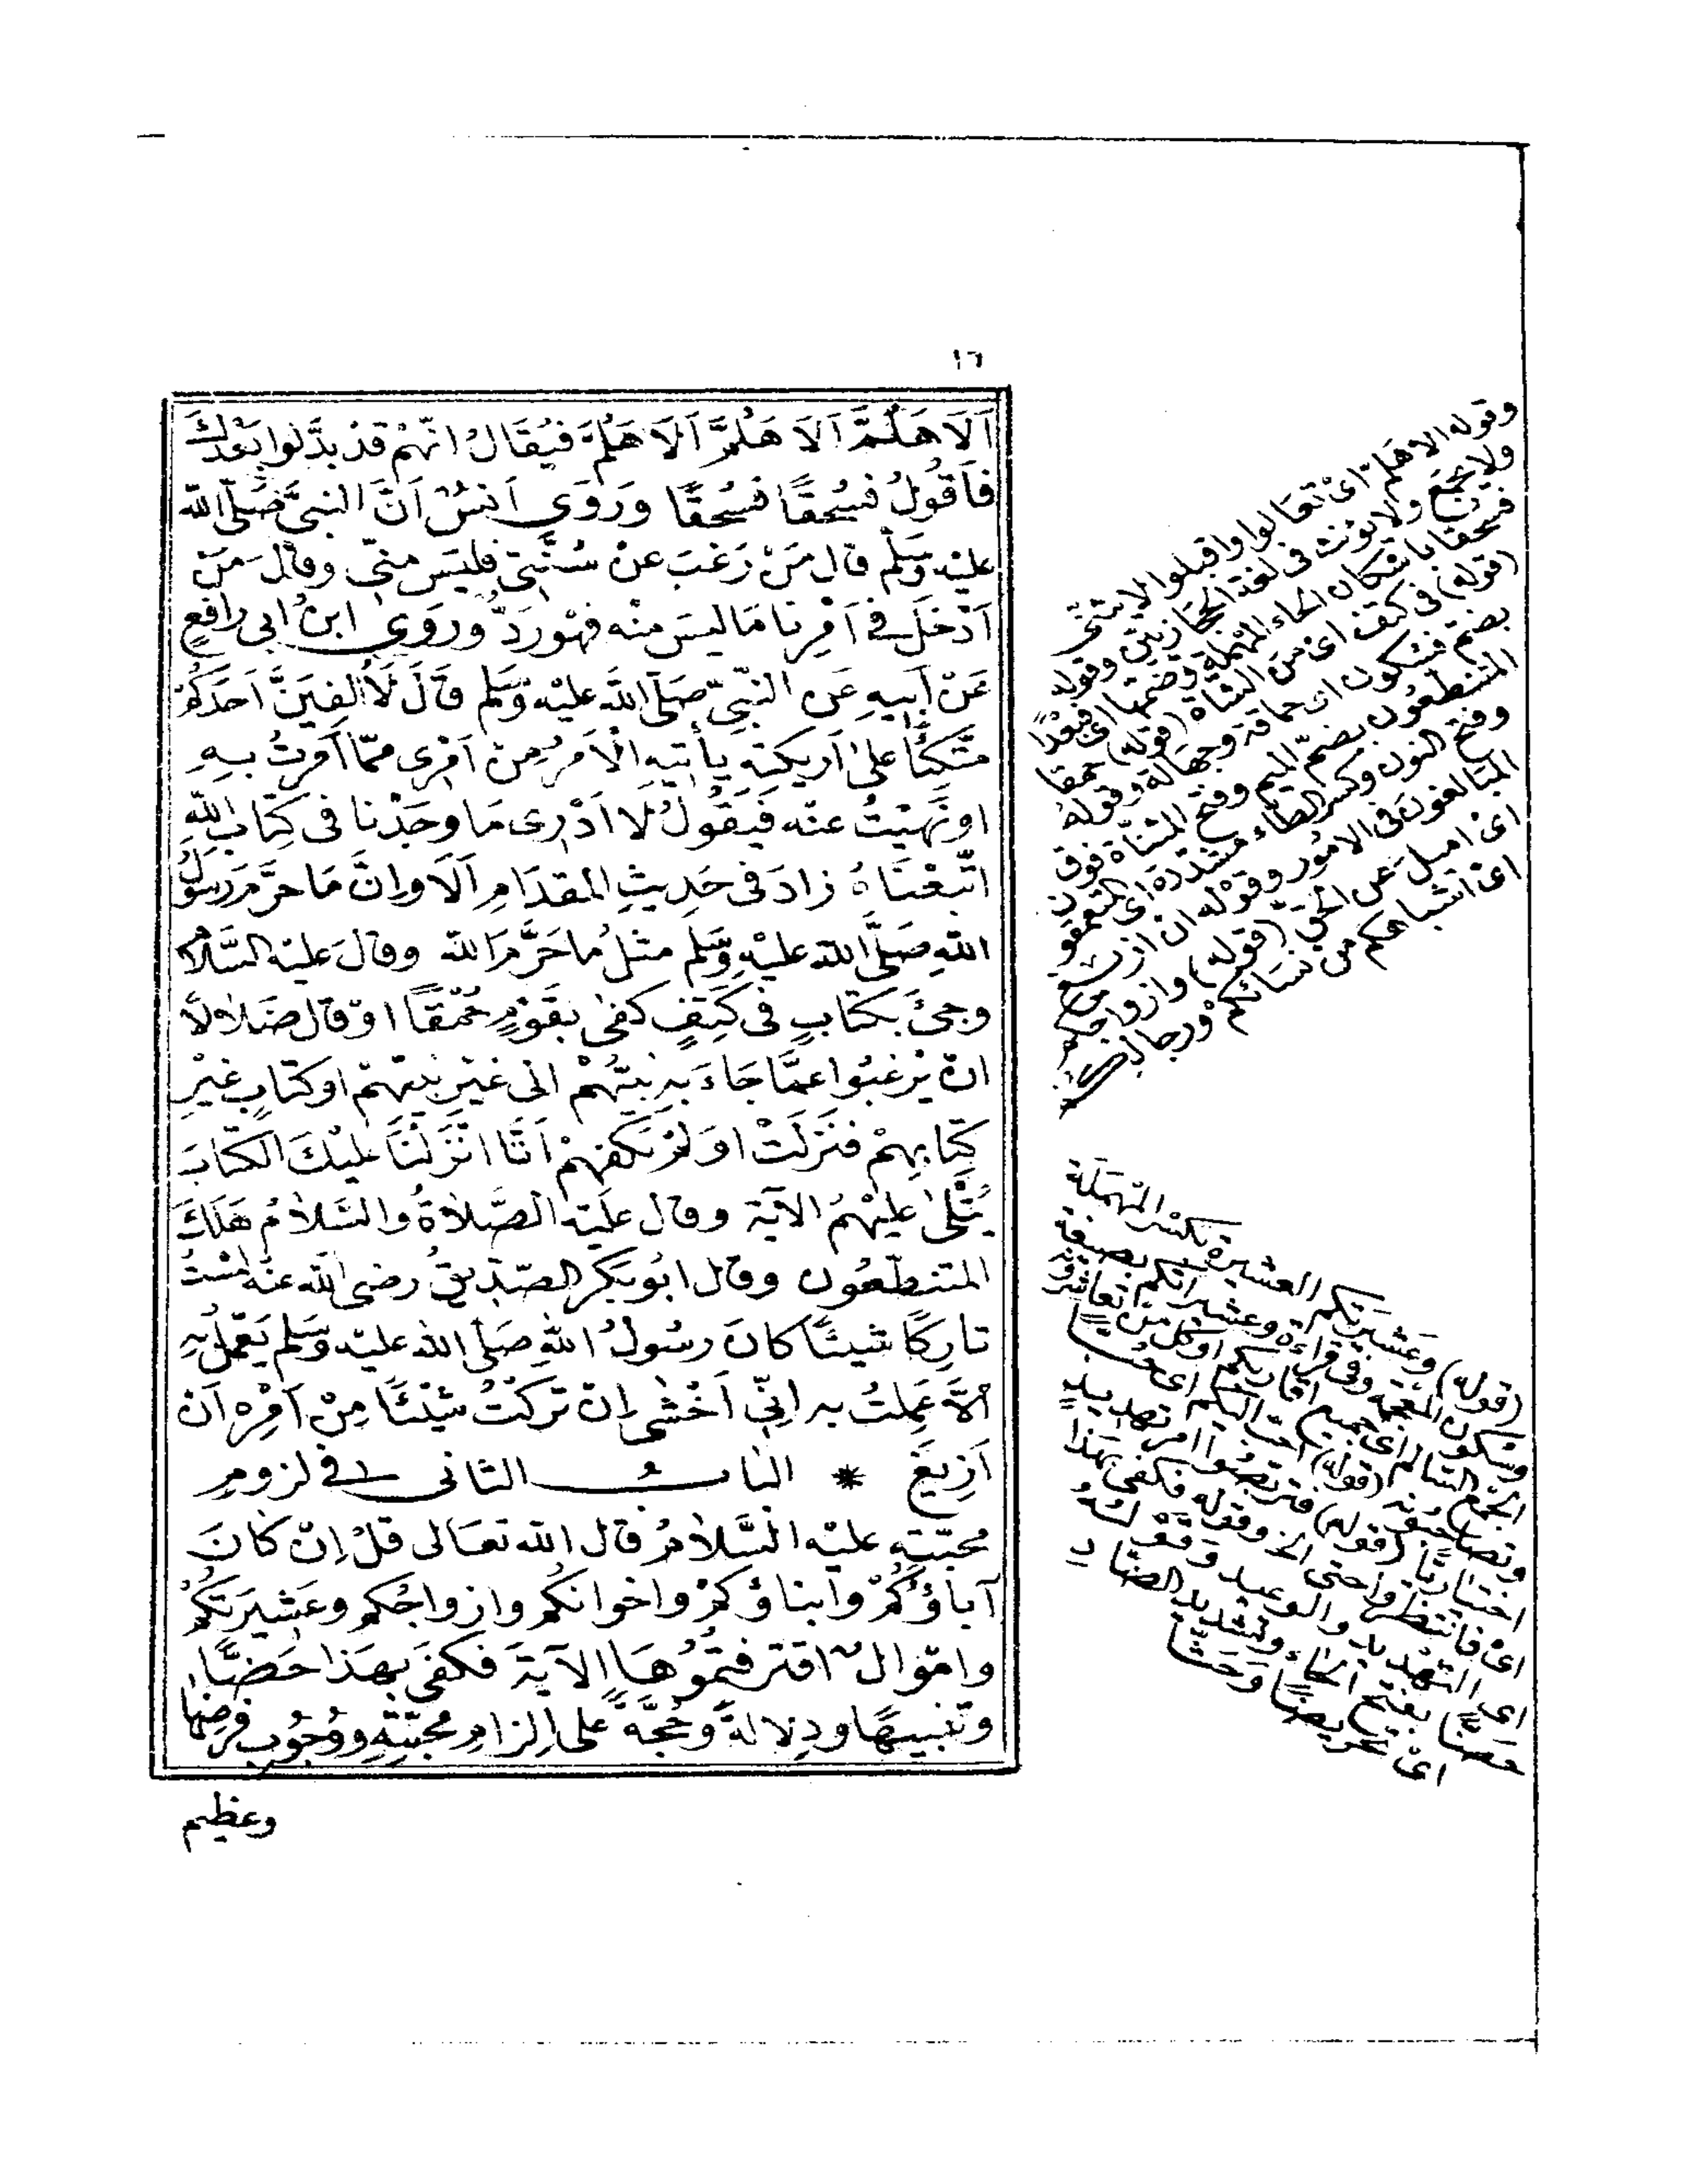 ١٦
اَلَا هَلُمَّ اَلَا هَلُمَّ اَلَا هَلُمَّ فَيُقَالُ اِنَّهُمْ قَدْ بَدَّلُوا بَعْدَكَ
فَاَقُولُ فَسُحْقًا فَسُحْقًا وَرَوَى اَنَسٌ اَنَّ النَّبِيَّ صَلَّى اللّٰه
عليْه وَسَلَّم قَال مَنْ رَغِبَ عَنْ سُنَّتِي فليْسَ مِنِّي وقالَ مَنْ
اَدْخَلَ في اَمْرِنا مَا ليسَ مِنْه فهُوَ رَدٌّ وروَى ابنُ ابى رافِعٍ
عَنْ اَبِيهِ عَنِ النَّبِيّ صَلَّى اللّٰه عليْه وَسَلَّم قَالَ لَا اُلْفِيَنَّ اَحَدَكُمْ
مُتَّكِئًا عَلىٰ اَرِيكَتِهِ يأتِيهِ الْاَمْرُ مِنْ اَمْرى مِمَّا اَمَرْتُ بِهِ
اوْ نَهَيْتُ عنْه فَيَقُولُ لَا اَدْرِى مَا وَجَدْنا فى كِتَابِ اللّٰهِ
اتَّبَعْنَاهُ زادَ فى حَدِيثِ المِقدَامِ اَلَا وَاِنَّ مَا حَرَّمَ رَسُولُ
اللّٰهِ صَلَّى اللّٰه عليْهِ وَسَلَّم مثلُ مَا حَرَّمَ اللّٰه وقالَ عَليْه السَّلامُ
وجِئَ بكتابٍ فى كَتِفٍ كفىٰ بقَوْمٍ حُمْقًا اوْ قال ضَلالًا
انْ يَرْغَبُوا عمَّا جَاءَ به نبيُّهُمْ الى غيْرِ نبيِّهمْ او كتابٍ غيْرِ
كتابِهِمْ فنَزَلَتْ اوَ لَمْ يَكْفِهِمْ اَنَّا اَنْزَلْنَا عليْكَ الكتَابَ
يُتْلىٰ عليْهِمُ الآيَة وقال عَليْه الصَّلاةُ والسَّلامُ هَلَكَ
المتَنطِّعُون وقال ابُو بَكْرٍ الصّدّيقُ رضى اللّٰه عنْه لسْتُ
تارِكًا شيئًا كانَ رسُولُ اللّٰهِ صَلَّى اللّٰه عليْه وَسَلَّم يَعْمَلُ بِهِ
اِلَّا عَمِلْتُ به اِنّي اَخْشى اِنْ تركْتُ شَيْئًا مِنْ اَمْرِه اَنْ
اَزِيغَ * البابُ الثانى في لزومِ
محبّتِهِ عليْه السَّلامُ قال اللّٰه تعَالى قلْ اِنْ كانَ
آباؤُكُمْ وَابناؤكمْ واخوانكُم وازواجُكم وعَشيرَتكُمْ
وامْوال اقترفتمُوهَا الآيَةَ فكفَى بهَذا حَضًّا
وتَنبيهًا ودِلالةً وحُجَّةً على اِلزامِ محبّتِهِ ووُجُوبِ فرضِهَا
وعظيم
وقوله الا هلم اى تعالوا واقبلوا لا يثنى
ولا يجمع ولا يؤنث فى لغة الحجازيين وقوله
فسحقا باسكان الحاء المهملة وضمها اى فبعدًا
(قوله) فى كتف اى من الشاة (قوله) حمقا
بضم فسكون اى حماقة وجهالة وقوله
المتنطعون بضم الميم وفتح المثناة فوق
وفتح النون وكسر الطاء مشددة اى المتعمقون
المبالغون فى الامور وقوله ان ازيغ
اى اميل عن الحق (قوله) وازواجكم
اى اشباهكم من نسائكم ورجالكم
(قوله) وعشيرتكم العشيرة بكسر المهملة
وسكون المعجمة وفى قراءة وعشيراتكم بصيغة
الجمع السالم اى جميع اقاربكم او كل من تعاشرونه
وتصاحبونه (قوله) احب اليكم اى حبا
اختياريا (قوله) فتربصوا امر تهديد
اى فانتظروا حتى الخ وقوله فكفى بهذا
اى التهديد والوعيد وقوله
حضًّا بفتح الحاء وتشديد الضاد
اى تحريضا وحثًّا